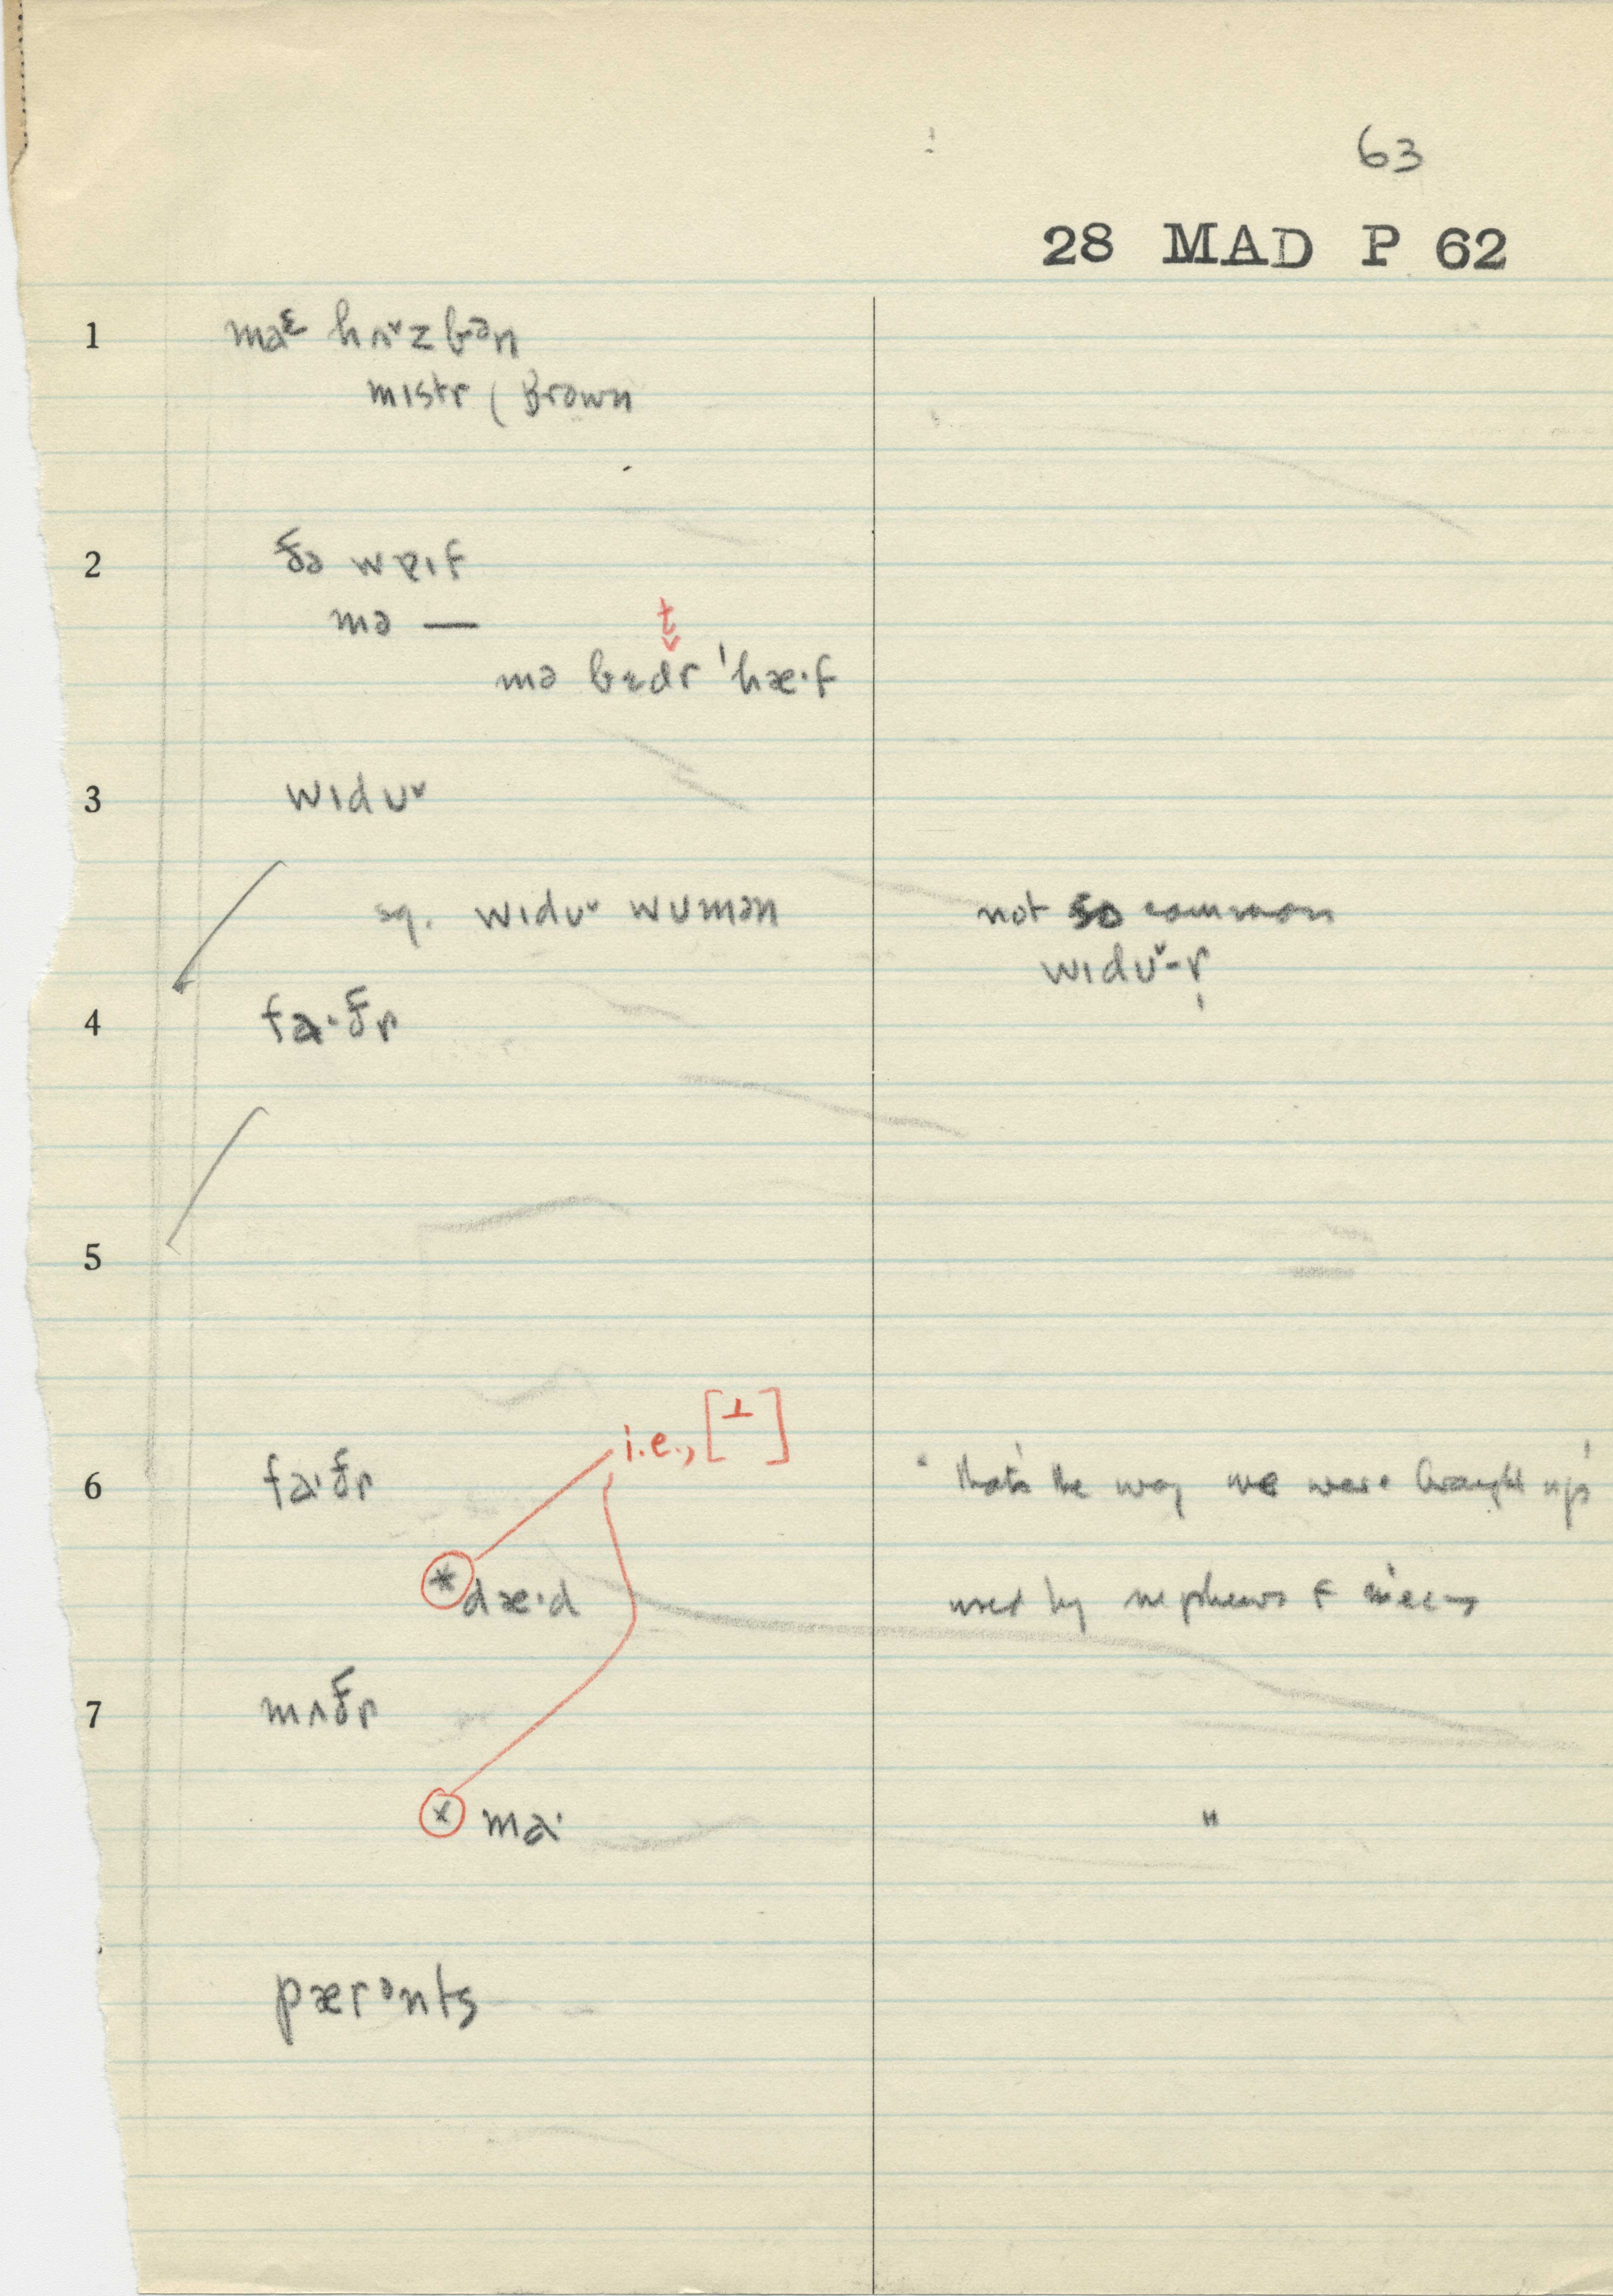 63
28 MAD P 62
1 maᵋ hʌ˅zbən
mɪstr ( Brown
2 ðə weɪf
mə —
t
mə bedr 'hæ·f
3 wɪdʊ˅
sq. wɪdʊ˅ wʊmən
not so common
wɪdʊ˅-r
4 fa·ðr
5
i.e., [⊥]
6 fa·ðr
"that's the way we were brought up"
* dæ·d
used by nephews & nieces
7 mʌðr
x ma·
"
pærənts